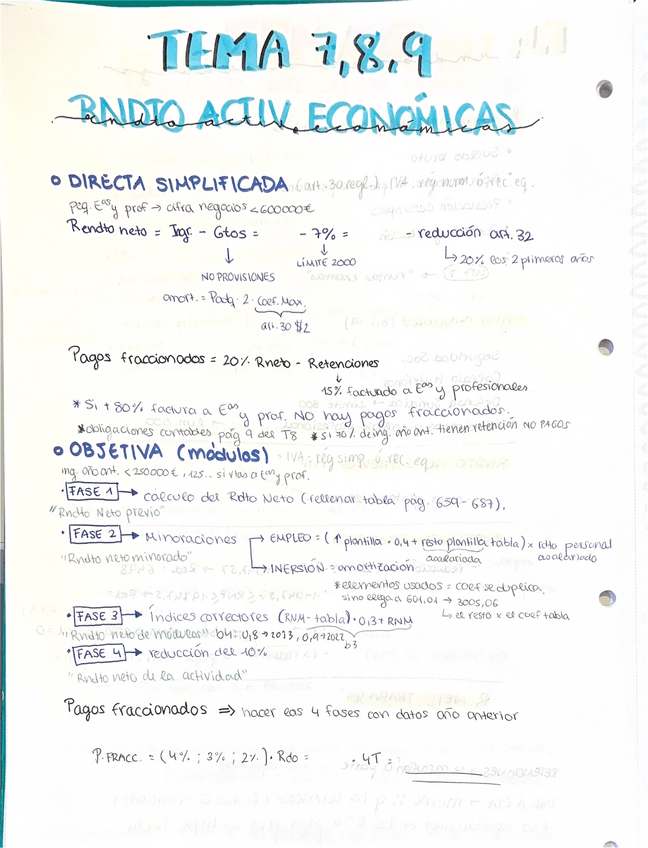 TEMA 7,8,9
RNDTO ACTIV. ECONÓMICAS
rndto activ. económicas
DIRECTA SIMPLIFICADA (art. 30 regl.) IVA: rég norm. ó rec. eq.
peq. Eas y prof → cifra negocios < 600000€
Rendto neto = Ingr. - Gtos = - 7% = - reducción art. 32
↓ ↓ ↳ 20% los 2 primeros años
NO PROVISIONES LÍMITE 2000
amort. = Padq. · 2 · Coef. Max.
art. 30 $2
Pagos fraccionados = 20% Rneto - Retenciones
↓
15% facturado a Eas y profesionales
* Si + 80% factura a Eas y prof. NO hay pagos fraccionados.
* obligaciones contables pág 9 del T8 * Si 70% de ing. año ant. tienen retención NO PAGOS
OBJETIVA (módulos) - IVA: rég simp. ó rec. eq.
ing. año ant. < 250000€, 125.. si vtas a Eas y prof.
· FASE 1 → cálculo del Rdto Neto (rellenar tabla pág. 659-687).
"Rndto Neto previo"
· FASE 2 → Minoraciones → EMPLEO = (↑ plantilla · 0,4 + resto plantilla tabla) × rdto personal
asalariada asalariado
"Rndto neto minorado" → INERSIÓN = amortización
* elementos usados = coef se duplica.
si no llega a 601,01 → 3005,06
↳ el resto x el coef tabla
· FASE 3 → Índices correctores (RNM - tabla) · 0,3 + RNM
"Rndto neto de módulos" b4: 0,8 → 2013, 0,9 → 2012
b3
· FASE 4 → reducción del 10%
"Rndto neto de la actividad"
Pagos fraccionados ⇒ hacer las 4 fases con datos año anterior
P. FRACC. = (4% ; 3% ; 2%) · Rdo = · 4T =